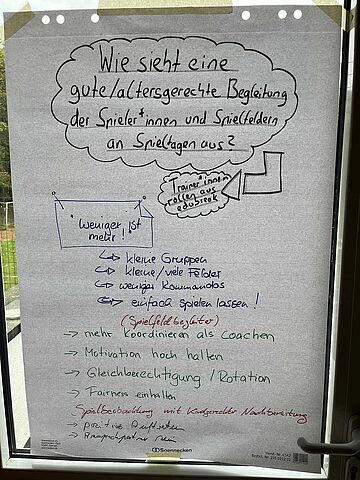 Wie sieht eine
gute/altersgerechte Begleitung
der Spieler*innen und Spielfeldern
an Spieltagen aus?
Trainer*innen
rollen aus
weniger ist
mehr!
kleine Gruppen
kleine/viele Felder
weniger Kommandos
einfach spielen lassen!
(Spielfeldbegleiter)
→ mehr koordinieren als coachen
→ Motivation hoch halten
→ Gleichberechtigung / Rotation
→ Fairness einhalten
Spielbeobachtung mit Kindgerechter Nachbereitung
→ positive Auftreten
→ Ansprechpartner sein
Soennecken